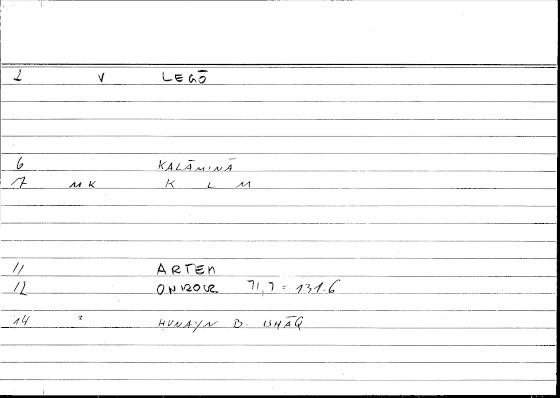 2 V LEGŌ
6 KALĀMINĀ
7 MK K L M
11 ARTEM
12 71,7 = 131.6
14 " ḤUNAYN B. ISHĀQ